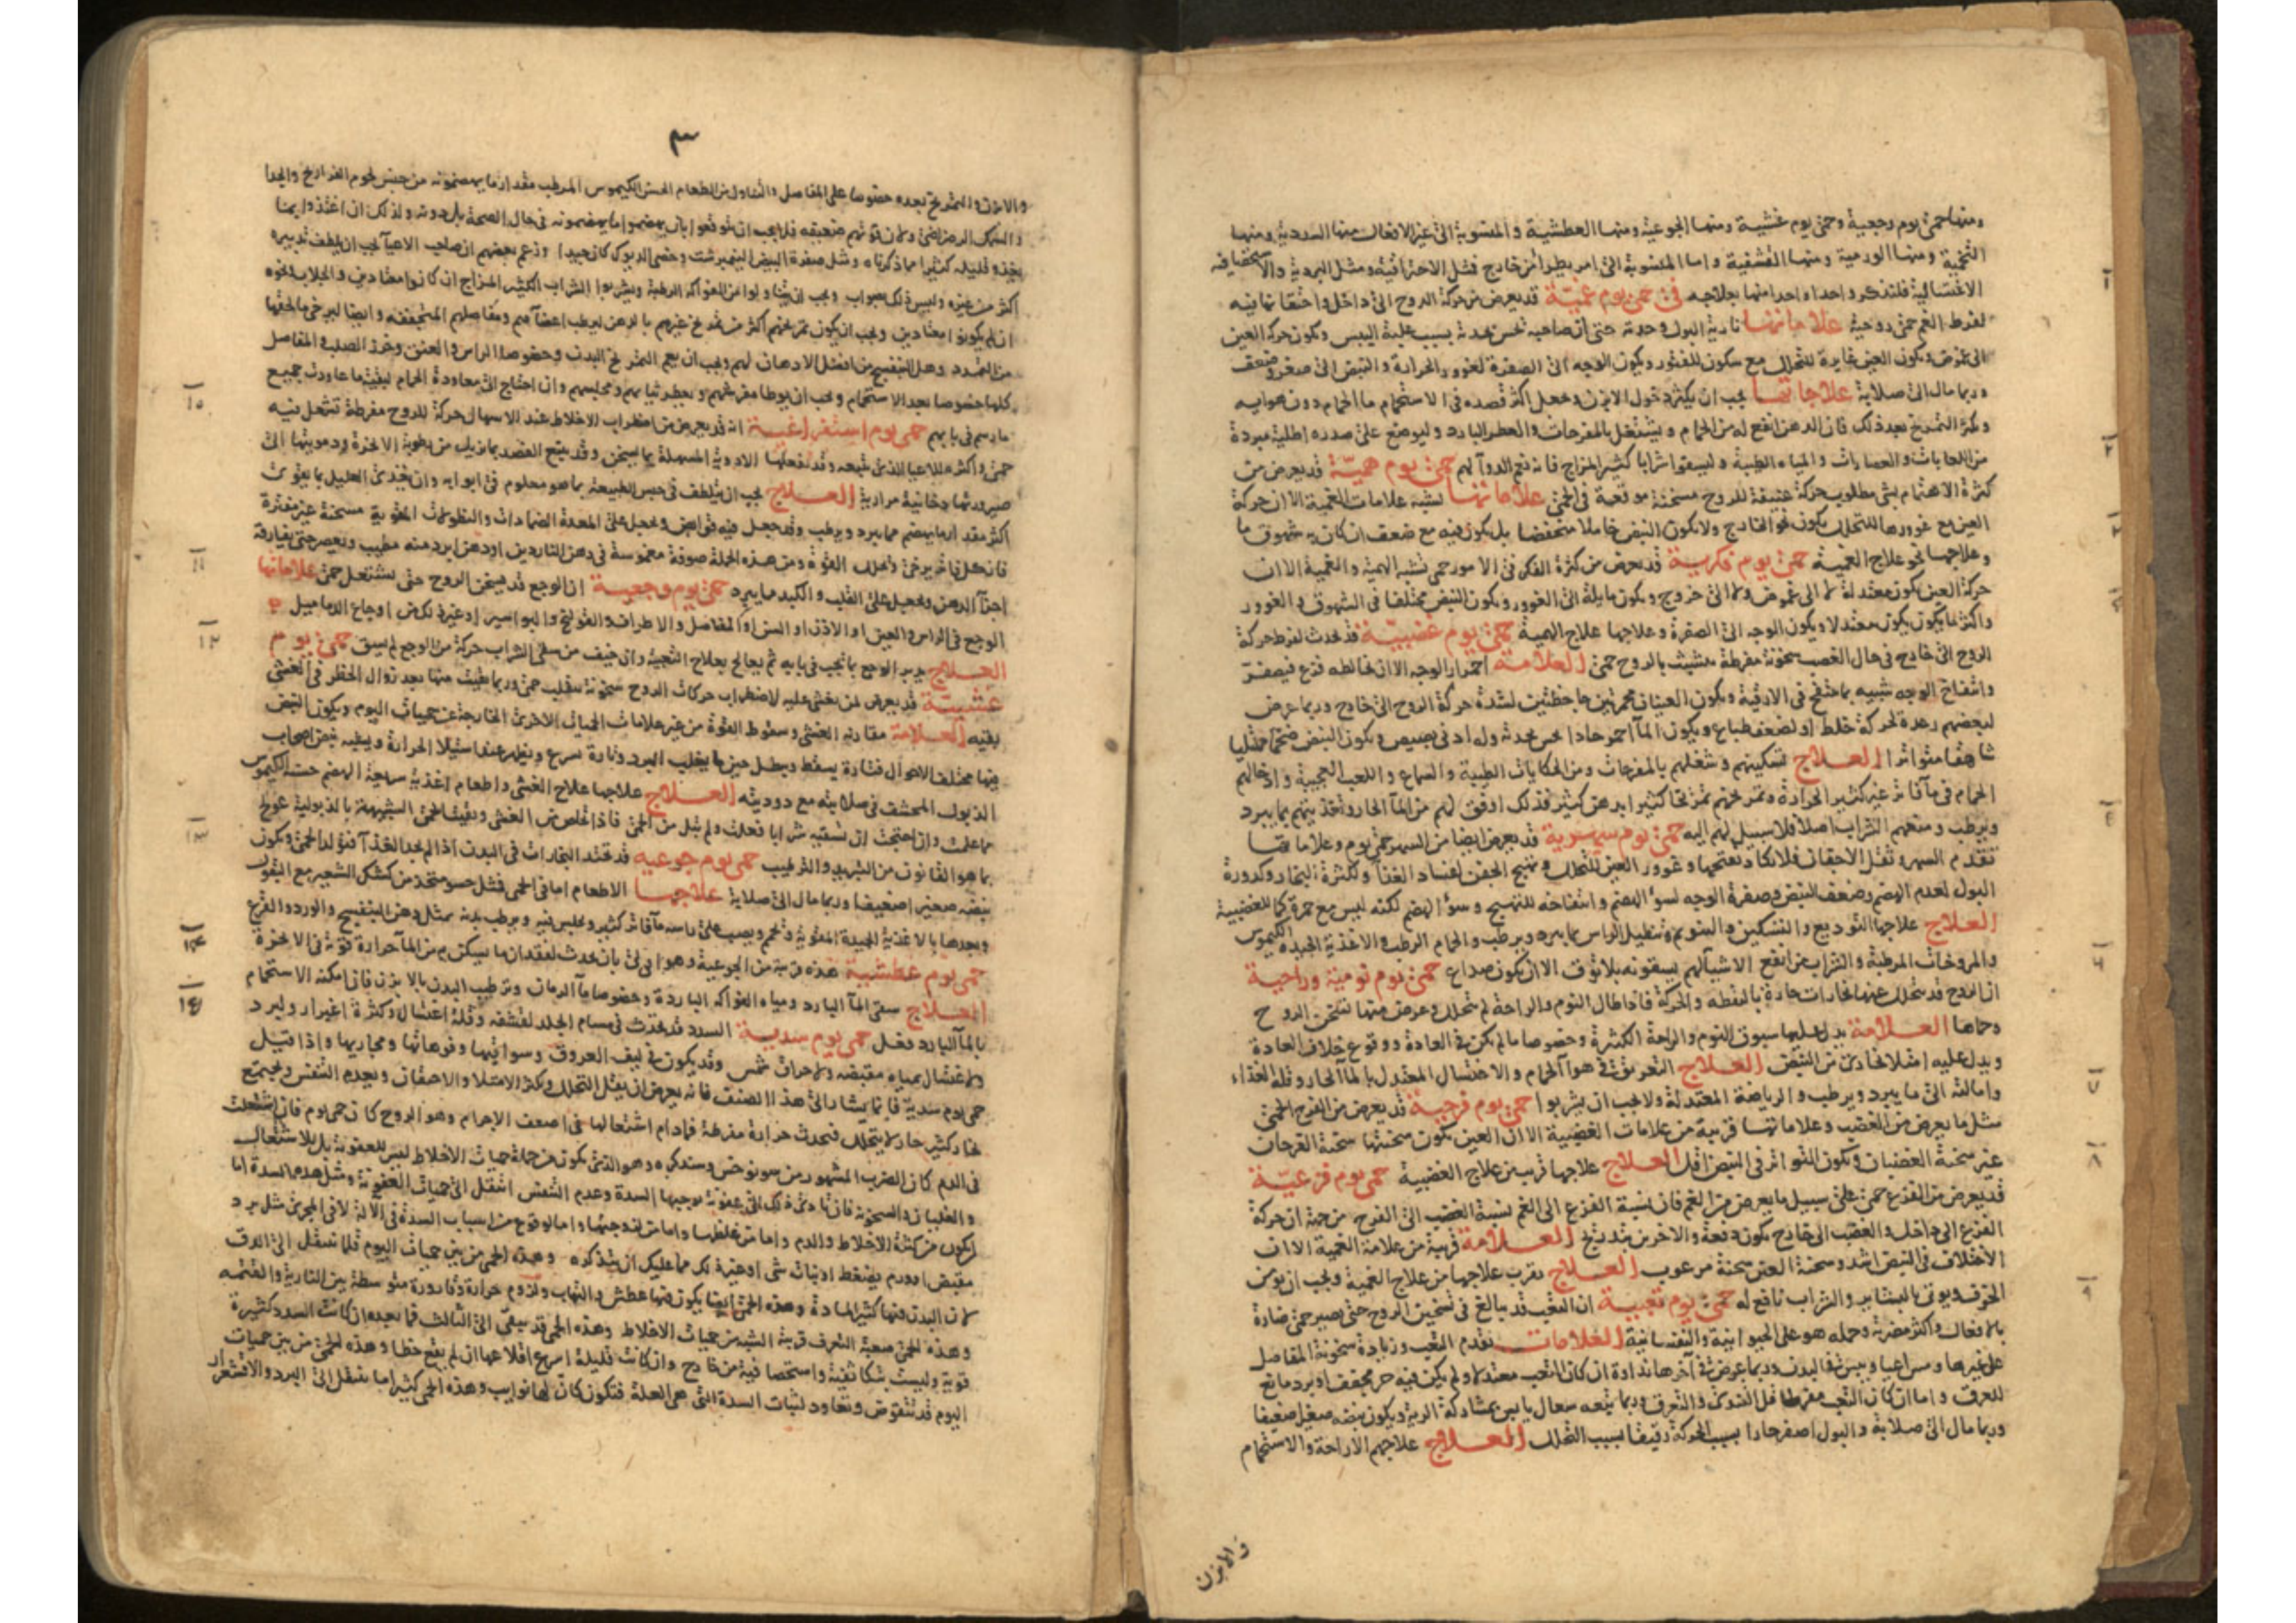 ومنها حمى يوم وجعية وحمى يوم غشيية ومنها الجوعية ومنها العطشية والمنسوبة الى غير الافعال منها السددية ومنها
التخمية ومنها الورمية ومنها القشفية واما المنسوبة الى امر يطرا من خارج فمثل الاحتراقية ومثل البردية والاستحصافية
الاغتسالية فلنذكر واحدا واحدا منها بعلاجه في حمى يوم غمية قد يعرض من حركة الروح الى داخل واختقانها فيه
لفرط الغم حمى روحية علاماتها نارية البول وحدته حتى ان صاحبه يحس بحدة بسبب غلبة اليبس وتكون حركة العين
الى غموض وتكون العين غايرة للتحلل مع سكون للفتور ويكون الوجه الى الصفرة لغوور الحرارة والنبض الى صغر وضعف
وربما مال الى صلابة علاجاتها يجب ان يكثر دخول الابزن ويجعل اكثر قصده في الاستحمام ما الحمام دون هوايه
ويكثر التمريخ بعد ذلك فان الدهن انفع له من الحمام ويشتغل بالمفرحات والعطر البارد ويوضع على صدره اطلية مبردة
من اللعابات والعصارات والمياه الطيبة وليسقوا شرابا كثير المزاج فانه نعم الدوآ لهم حمى يوم همية قد يعرض من
كثرة الاهتمام بشى مطلوب حركة عنيفة للروح مسخنة موقعة في الحمى علاماتها تشبه علامات الغمية الا ان حركة
العين مع غوورها للتحلل يكون نحو الخارج ولا يكون النبض خاملا منخفضا بل يكون فيه مع ضعف ان كان به شهوق ما
وعلاجها نحو علاج الغمية حمى يوم فكرية قد يعرض من كثرة الفكر في الامور حمى تشبه الهمية والغمية الا ان
حركة العين يكون معتدلة لا الى غموض ولا الى خروج ويكون مايلة الى الغوور ويكون النبض مختلفا في الشهوق والغوور
واكثر ما يكون يكون معتدلا ويكون الوجه الى الصفرة وعلاجها علاج الهمية حمى يوم غضبية قد تحدث لفرط حركة
الروح الى خارج في حال الغضب سخونة مفرطة يتشبث بالروح حمى العلامة احمرار الوجه الا ان يخالطه فزع فيصفر
وانتفاخ الوجه شبيه بما ينتفخ في الارقية ويكون العينان محمرتين جاحظتين لشدة حركة الروح الى خارج وربما عرض
لبعضهم رعدة لحركة خلط او لضعف طباع ويكون المآ احمر حادا يحس بحدته وله ادنى بصيص ويكون النبض ضخما ممتليا
شاهقا متواترا العلاج تسكينهم وشغلهم بالمفرحات ومن الحكايات الطيبة والسماع واللعب العجيبة وادخالهم
الحمام في مآ فاتر غير كثير الحرارة وتمريخهم تمريخا كثيرا بدهن كثير فذلك اوفق لهم من المآ الحار وتغذيتهم بما يبرد
ويرطب ومنعهم الشراب اصلا فلا سبيل لهم اليه حمى يوم سهرية قد يعرض ايضا من السهر حمى يوم وعلاماتها
تقدم السهر وثقل الاجفان فلا تكاد تفتحها وغوور العين للتحلل وتهيج الجفن لفساد الغذآ ولكثرة البخار وكدورة
البول لعدم الهضم وضعف النبض وصفرة الوجه لسوء الهضم وانتفاخه للتهيج وسوء الهضم لكنه ليس مع حمرة كما للغضبية
العلاج علاجها التوديع والتسكين والتنويم وتنطيل الراس بما يبرد ويرطب والحمام الرطب والاغذية الجيدة الكيموس
والمروخات المرطبة والشراب من انفع الاشيآ لهم يسقونه بلا توق الا ان يكون صداع حمى يوم نومية وراحية
ان الروح قد يتحلل عنها بخارات حادة باليقظة والحركة فاذا طال النوم والراحة لم يتحلل وعرض منها تسخن الروح
وحماها العلامة يدل عليها سبوق النوم والراحة الكثيرة وخصوصا ما لم يكن في العادة ووقوع خلاف العادة
ويدل عليه امتلا بخاري من النبض العلاج التعريق في هوآ الحمام والاغتسال المعتدل بالمآ الحار وقلة الغذاء
وامالته الى ما يبرد ويرطب والرياضة المعتدلة ولا يجب ان يشربوا حمى يوم فرحية قد يعرض من الفرح الحمى
مثل ما يعرض من الغضب وعلاماتها قريبة من علامات الغضبية الا ان العين يكون سحنتها سحنة الفرحان
غير سحنة الغضبان ويكون التواتر في النبض اقل العلاج علاجها قريب من علاج الغضبية حمى يوم فزعية
قد يعرض من الفزع حمى على سبيل ما يعرض من الغم فان نسبة الفزع الى الغم نسبة الغضب الى الفرح من جهة ان حركة
الفزع الى داخل والغضب الى خارج يكون دفعة والاخرين بتدريج العلامة قريبة من علامة الغمية الا ان
الاختلاف في النبض اشد وسحنة العين سحنة مرعوب العلاج يقرب علاجها من علاج الغمية ويجب ان يومن
الخوف ويوتى بالبشاير والشراب نافع له حمى يوم تعبية ان التعب قد يبالغ في تسخين الروح حتى يصير حمى ضارة
بالافعال واكثر مضرته وحمله هو على الحيوانية والنفسانية العلامات تقدم التعب وزيادة سخونة المفاصل
على غيرها ومس اعيا ويبس في البدن وربما عرض في اخرها نداوة ان كان التعب معتدلا ولم يكن فيه حر مجفف او برد مانع
للعرق واما ان كان التعب مفرطا قل الندى والتعرق وربما يتبعه سعال يابس بمشاركة الرية ويكون نبضه صغيرا ضعيفا
وربما مال الى صلابة والبول اصفر حادا بسبب الحركة رقيقا بسبب التحلل العلاج علاجهم الاراحة والاستحمام
والابزن
٣
والابزن والتمريخ بعده خصوصا على المفاصل والتناول من الطعام الحسن الكيموس المرطب مقدار ما يهضمونه من جنس لحوم الفراريج والجدا
والسمك الرضراضى ولان قوتهم ضعيفة فلا يجب ان يتوقعوا بان يهضموا ما يهضمونه في حال الصحة بل دونه ولذلك ان اغتذوا بما
يغذو قليله كثيرا مما ذكرناه ومثل صفرة البيض النيمبرشت وخصى الديوك كان جيدا وزعم بعضهم ان صاحب الاعيآ يجب ان يلطف تدبيره
اكثر من غيره وليس ذلك بصواب ويجب ان يتناولوا من الفواكه الرطبة ويشربوا الشراب الكثير المزاج ان كانوا معتادين والجلاب ونحوه
ان لم يكونوا معتادين ويجب ان يكون تمريخهم اكثر من تمريخ غيرهم بالدهن ليرطب اعضآهم ومفاصلهم المتجففة وايضا ليرخى ما لحقها
من التمدد ودهن البنفسج من افضل الادهان لهم ويجب ان يعم التمريخ البدن وخصوصا الراس والعنق وخرز الصلب والمفاصل
كلها خصوصا بعد الاستحمام ويجب ان يوطا مفرشهم ويعطر ثيابهم ومجلسهم وان احتاج الى معاودة الحمام لبقية ما عاودت جميع
ما رسم في بابهم حمى يوم استفراغية انه قد يعرض من اضطراب الاخلاط عند الاسهال حركة للروح مفرطة تشعل فيه
حمى واكثره للاعيا الذى يتبعه وقد تفعلها الادوية المسهلة بما يسخن وقد يتبع الفصد بما يزيل من رطوبة الابخرة ودمويتها الى
صيرورتها دخانية مرارية العلاج يجب ان يتلطف في حبس الطبيعة بما هو معلوم في ابوابه وان يغذى العليل بما يقوى
اكثر مقدار ما يهضم مما يبرد ويرطب وقد جعل فيه قوابض ويجعل على المعدة الضمادات والنطولات المقوية مسخنة غير مفترة
فان كل فاتر يرخى وتحلل القوة ومن هذه الجملة صوفة مغموسة في دهن الناردين او دهن ابرد منه مطيب وتعصر حتى يفارقه
اجزآ الدهن ويجعل على القلب والكبد مما يبرد حمى يوم وجعية ان الوجع قد يسخن الروح حتى يشتعل حمى علاماتها
الوجع في الراس والعين او الاذن او السن او المفاصل والاطراف والقولنج والبواسير او غير ذلك من اوجاع الدماميل
العلاج يدبر الوجع بما يجب في بابه ثم يعالج بعلاج التعبية وان خيف من سقى الشراب حركة من الوجع لم يسق حمى يوم
غشيية قد يعرض لمن يغشى عليه لاضطراب حركات الروح سخونة تنقلب حمى وربما بقيت منها بعد زوال الخطر في الغشى
بقية العلامة مقارنة الغشى وسقوط القوة من غير علامات الحميات الاخرى الخارجة عن حميات اليوم ويكون النبض
فيها مختلف الاحوال فتارة يسقط ويبطل حين ما يغلب البرد وتارة يسرع ويظهر عند استيلا الحرارة ويشبه نبض اصحاب
الذبول المحشف في صلابته مع دوديته العلاج علاجها علاج الغشى واطعام اغذية سريعة الهضم حسنة الكيموس
مما علمت وان احتجت ان تسقيه شرابا فعلت ولم تبل من الحمى فاذا خلص من الغشى وبقيت الحمى الشبيهة بالذبولية عولج
بما هو القانون من التبريد والترطيب حمى يوم جوعية قد تحتد البخارات في البدن اذا لم يجد الغذآ فتولد الحمى ويكون
نبضه صغيرا ضعيفا وربما مال الى صلابة علاجها الاطعام اما في الحمى فمثل حسو متخذ من كشك الشعير مع البقول
وبعدها بالاغذية الجيدة المقوية وتحم ويصب على راسه مآ فاتر كثير ويجلس فيه ويرطب بدنه بمثل دهن البنفسج والورد والقرع
حمى يوم عطشية هذه قريبة من الجوعية وهو اولى بان يحدث لفقدان ما يسكن به من المآ حرارة قوية في الابخرة
العلاج سقى المآ البارد ومياه الفواكه الباردة وخصوصا مآ الرمان وترطيب البدن بالابزن فان امكنه الاستحمام
بالمآ البارد فعل حمى يوم سددية السدد قد يحدث في مسام الجلد لقشفه وقلة اغتسال وكثرة اغبرار ولبرد
ولاغتسال بمياه مقبضة ولاحراق شمس وقد يكون في ليف العروق وسواقيها وفوهاتها ومجاريها واذا قيل
حمى يوم سددية فانما يشار الى هذا الصنف فانه يعرض ان يقل التحلل ويكثر الامتلا والاحتقان ويعدم التنفس ويجتمع
بخار كثير حار لا يتحلل فيحدث حرارة مفرطة فمادام اشتعالها في اضعف الاجرام وهو الروح كان حمى يوم فان اشتعلت
في الدم كان الضرب المشهور من سونوخس وسنذكره وهو الذى يكون من جملة حميات الاخلاط ليس للعفونة بل للاشتعال
والغليان والسخونة فان تادى ذلك الى عفونة يوجبها السدة وعدم التنفس انتقل الى حميات العفونة ومثل هذه السدة اما
ان يكون من كثرة الاخلاط والدم واما من غلظها واما من لزوجتها واما لوقوع من اسباب السدة في الآلة لا في المجرى مثل برد
مقبض او ورم يضغط او نبات شى او غير ذلك مما عليك ان يتذكره وهذه الحمى من بين حميات اليوم قلما تنتقل الى الدق
لان البدن فيها كثير المادة وهذه الحمى ايضا يكون فيها عطش والتهاب ولزوم حرارة وقارورة متوسطة بين النارية والقتمة
وهذه الحمى صعبة التعرف قريبة الشبه من حميات الاخلاط وهذه الحمى قد يبقى الى الثالث فما بعده ان كانت السدد كثيرة
قوية وليست بتكاثفية واستحصافية من خارج وان كانت قليلة اسرع اقلاعها ان لم يقع خطا وهذه الحمى من بين حميات
اليوم قد تنتقوض وتعاود لثبات السدة التى هي العلة فتكون كان لها نوايب وهذه الحمى كثيرا ما ينتقل الى البرد والاقشعرار
١٠
١١
١٢
١٣